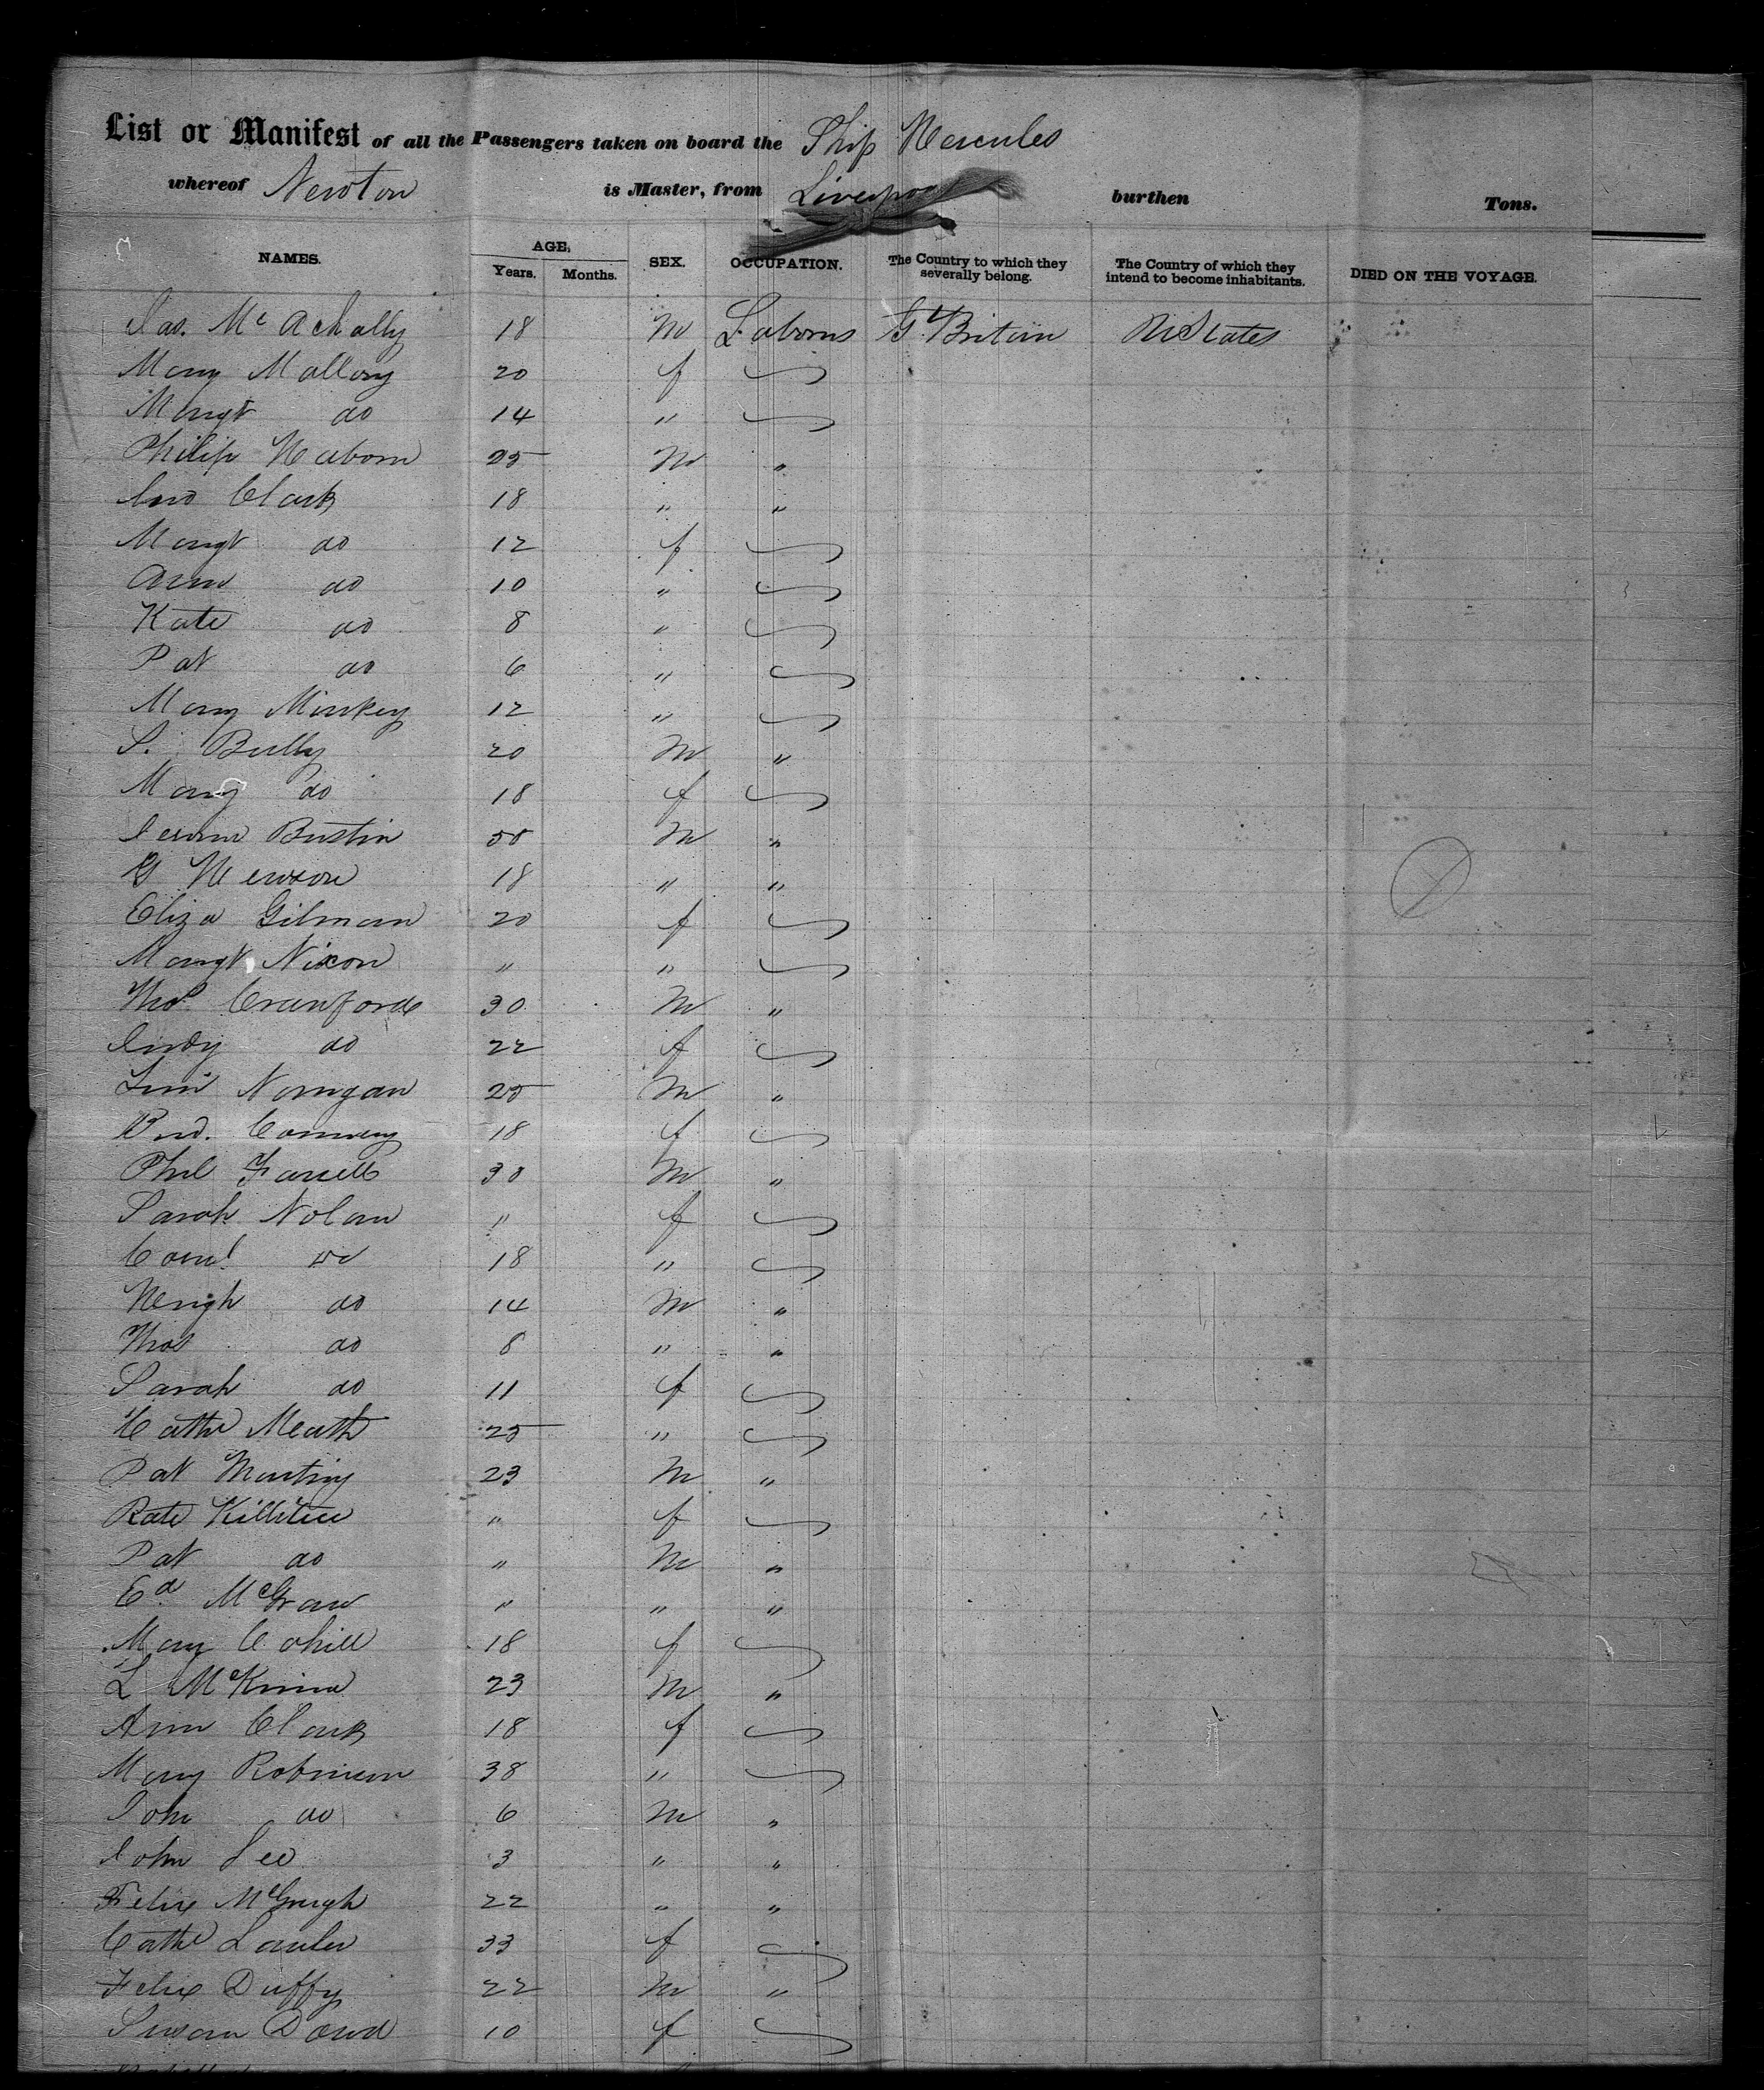 List or Manifest of all the Passengers taken on board the Ship Hercules
whereof Newton is Master, from Liverpool burthen Tons.
NAMES. AGE, Years. Months. SEX. OCCUPATION. The Country to which they severally belong. The Country of which they intend to become inhabitants. DIED ON THE VOYAGE.
Jas. Mc Achally 18 M Laborers Gt Britain U States
Mary Mallory 20 f
Margt do 14 "
Philip 25 M "
Jno Clark 18 " "
Margt do 12 f
Ann do 10 "
Kate do 8 "
Pat do 6 "
Mary 12 "
S. Bully 20 M "
Mary do 18 f
Bustin 50 M "
G 18 " "
Eliza Gilman 20 f
Margt Nixon " "
Thos Crawford 30 M "
Judy do 22 f
25 M "
18 f
Phil Farrell 30 M "
Sarah Nolan " f
do 18 "
Hugh do 14 M "
Thos do 8 " "
Sarah do 11 f
Cathe Meath 25 "
Pat 23 M "
Kate " f
Pat do " M "
Ed. McGraw " " "
Mary Cahill 18 f
L McKinna 23 M "
Ann Clark 18 f
Mary Robinson 38 "
John do 6 M "
John Lee 3 " "
Felix McGough 22 " "
Cathe Lawler 33 f
Felix Duffy 22 M "
Susan Dowd 10 f